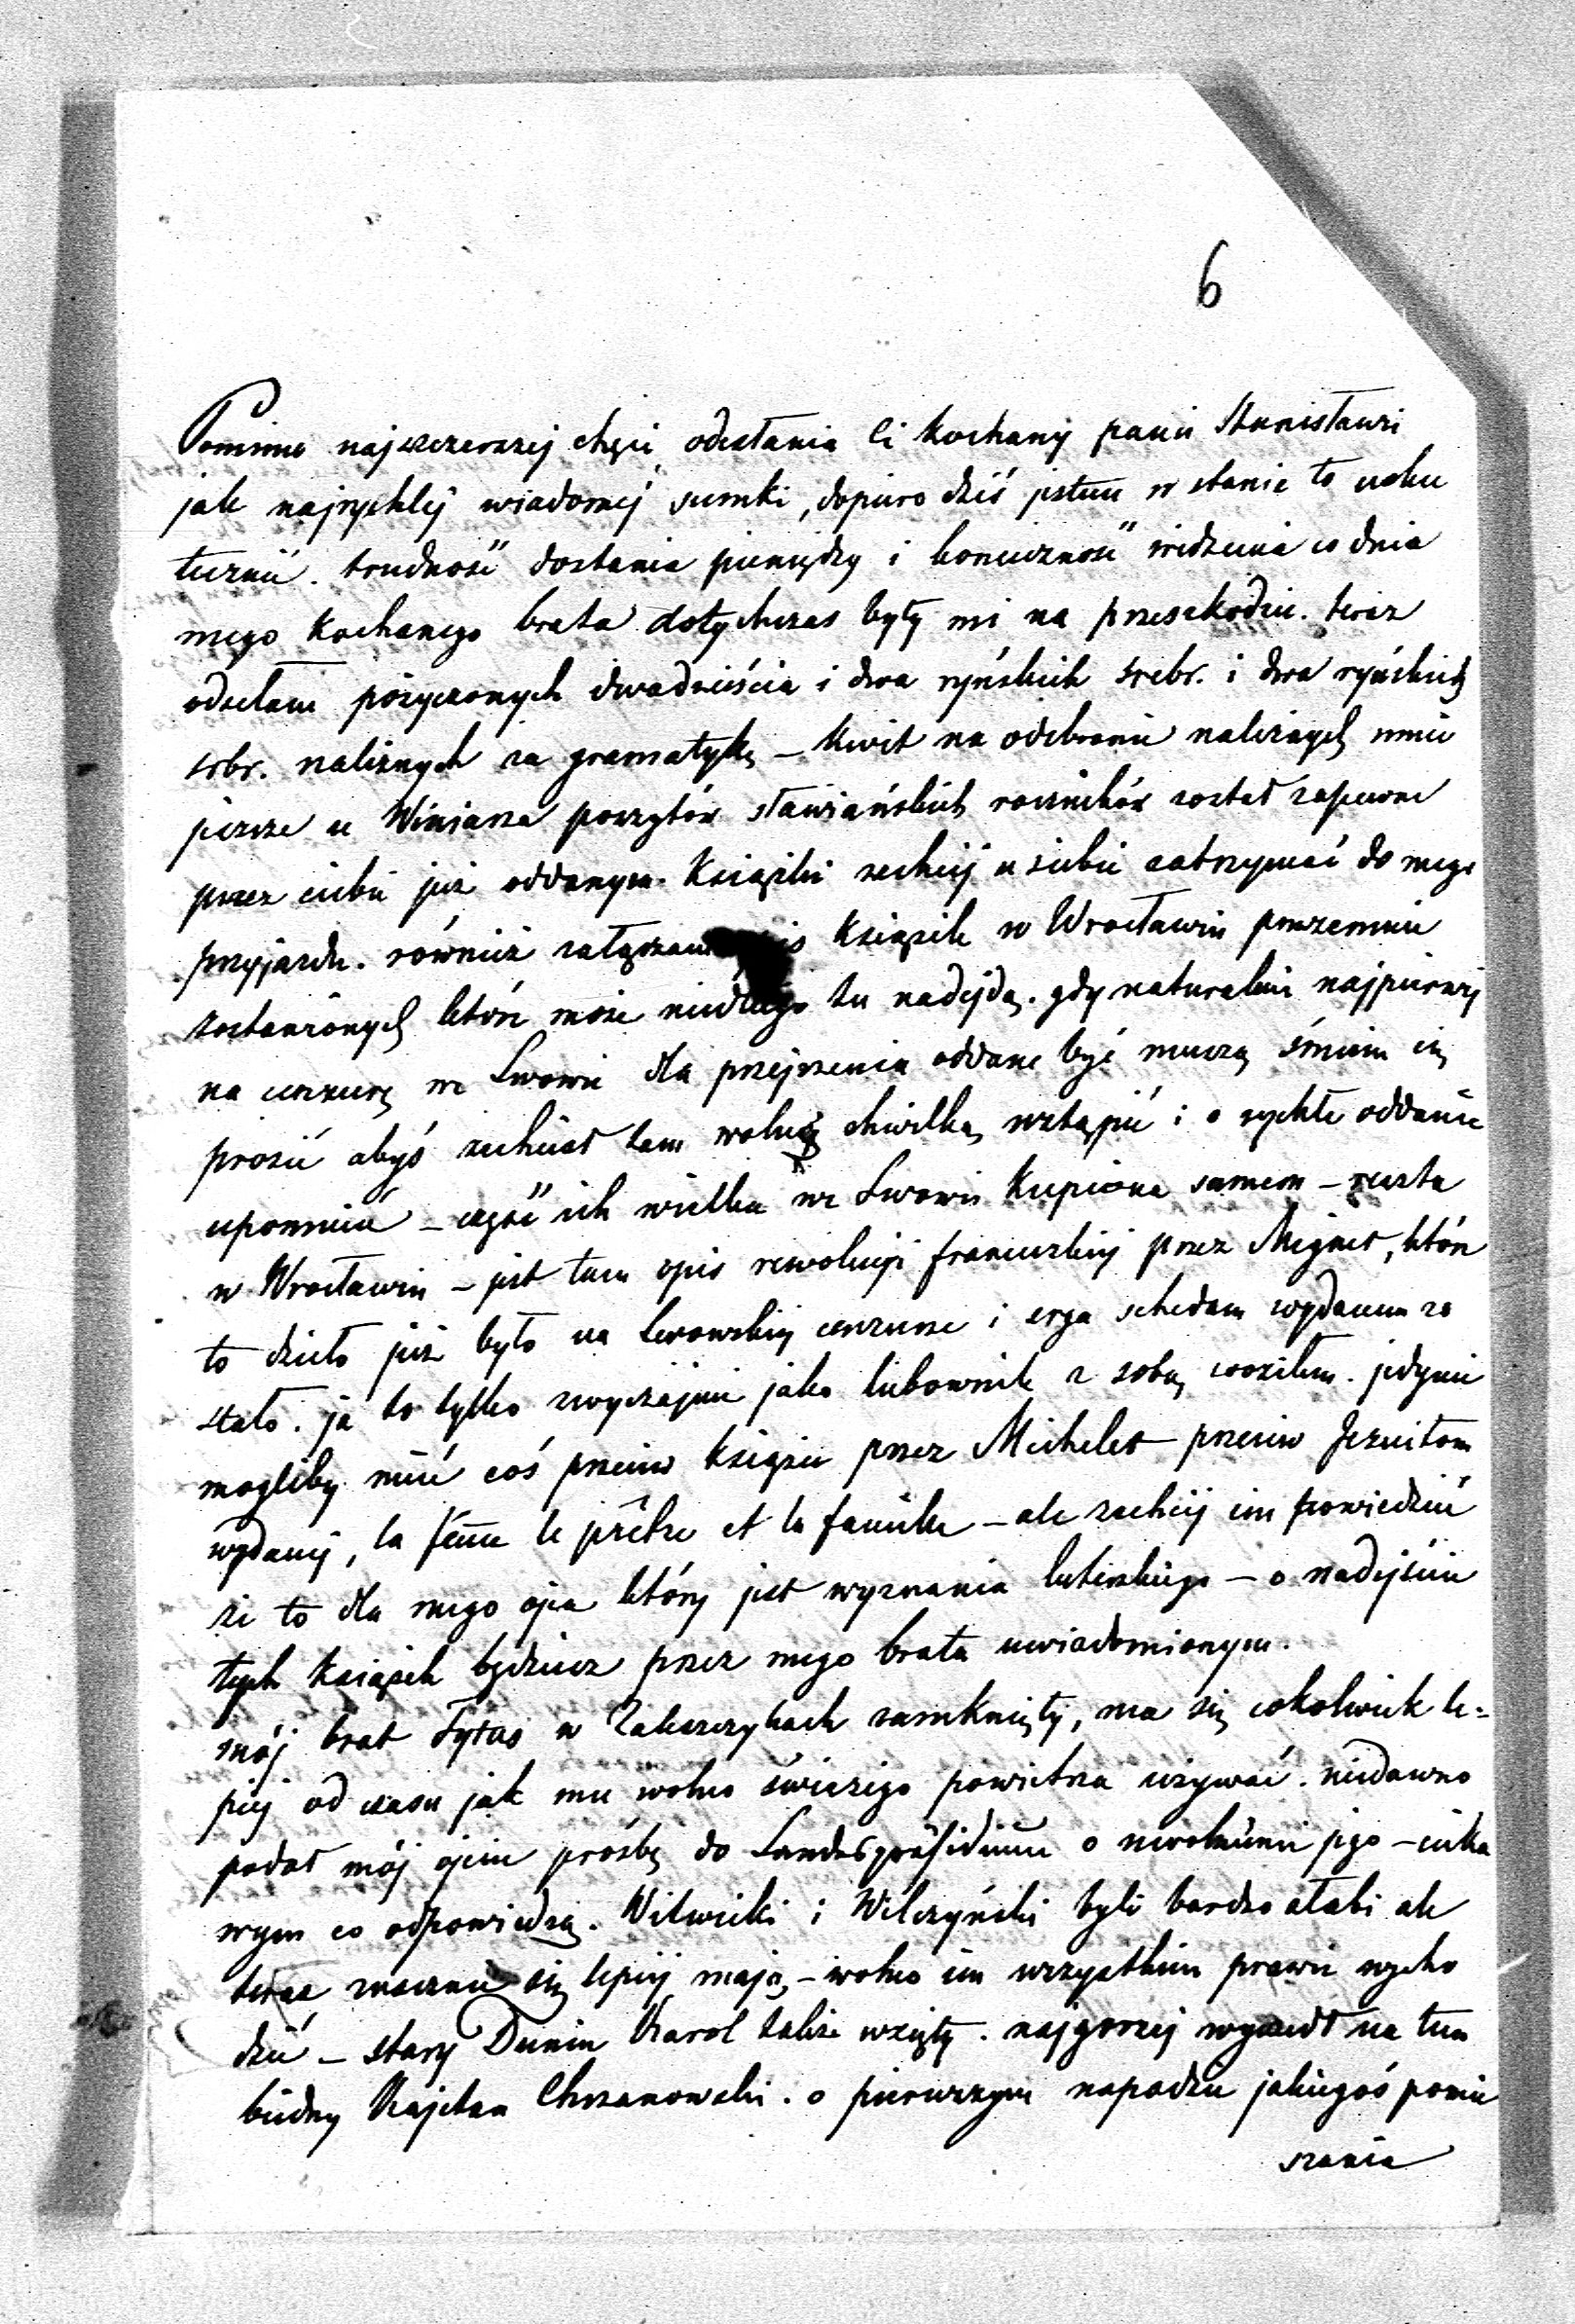 6
Pomimo najszczerszej chęci odesłania Ci kochany panie Stanisławie
jak najrychlej wiadomej sumki, dopiero dziś jestem w stanie to usku
tecznić. trudność dostania pieniędzy i konieczność widzenia co dnia
mego kochanego brata dotychczas były mi na przeszkodzie. teraz
odsełam pożyczonych dwadzieścia i dwa ryńskich srebr. i dwa ryńskich
srbr. należnych za gramatykę – kwit na odebranie należących mnie
jeszcze u Winiarza poszytów sławiańskich roczników został zapewne
przez ciebie już oddanym. Książki zechciej u siebie zatrzymać do mego
przyjazdu. również załączam spis książek w Wrocławiu przezemnie
zostawionych które może niedługo tu nadejdą. gdy naturalnie najpierwej
na cenzurę we Lwowie dla przejrzenia oddane być muszą śmiem cię
prosić abyś zechciał tam wolną chwilką wstąpić i o rychłe oddanie
upomnieć – część ich wielka we Lwowie kupiona samem – reszta
w Wrocławiu – jest tam opis rewolucji francuskiej przez Mignet, które
to dzieło już było na lwowskiej cenzurze i erga schedam wydanem zo
stało. ja to tylko zwyczajnie jako lubownik z sobą woziłem. jedynie
mogliby mieć coś przeciw księżce przez Michelet przeciw Jezuitom
wydanej, la fem̅e le prêtre et la famille – ale zechciej im powiedzieć
że to dla mego ojca który jest wyznania luterskiego – o nadejściu
tych książek będziesz przez mego brata uwiadomionym.
mój brat Tytus w Zaleszczykach zamknięty, ma się cokolwiek le=
piej od czasu jak mu wolno świeżego powietrza używać. niedawno
podał mój ojciec prośbę do Landespräsidium o uwolnienie jego – cieka
wym co odpowiedzą. Witwicki i Wilczyński byli bardzo słabi ale
teraz znacznie się lepiej mają – wolno im wszystkim prawie wycho
dzić – stary Dunin Karol także wzięty. najgorzej wyszedł na tem
biedny Kajetan Chrzanowski. o pierwszym napadzie jakiegoś pomie
szania